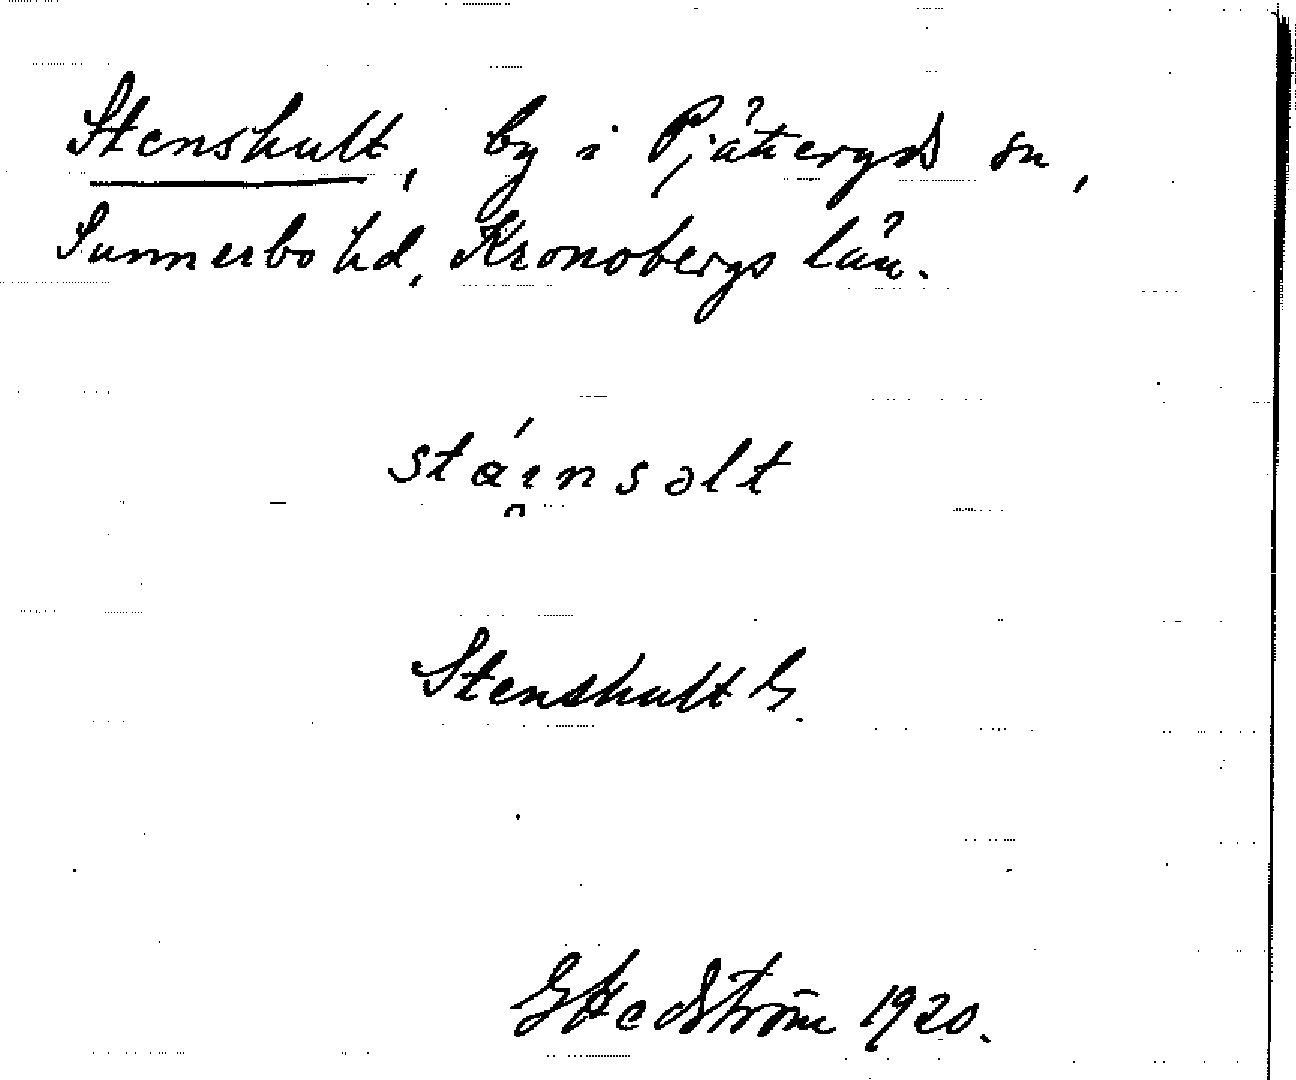 Stenshult, by i Pjätteryds sn,
Sunnerbo hd, Kronobergs län.
stáinsəlt
Stenshult G.
G Hedström 1920.